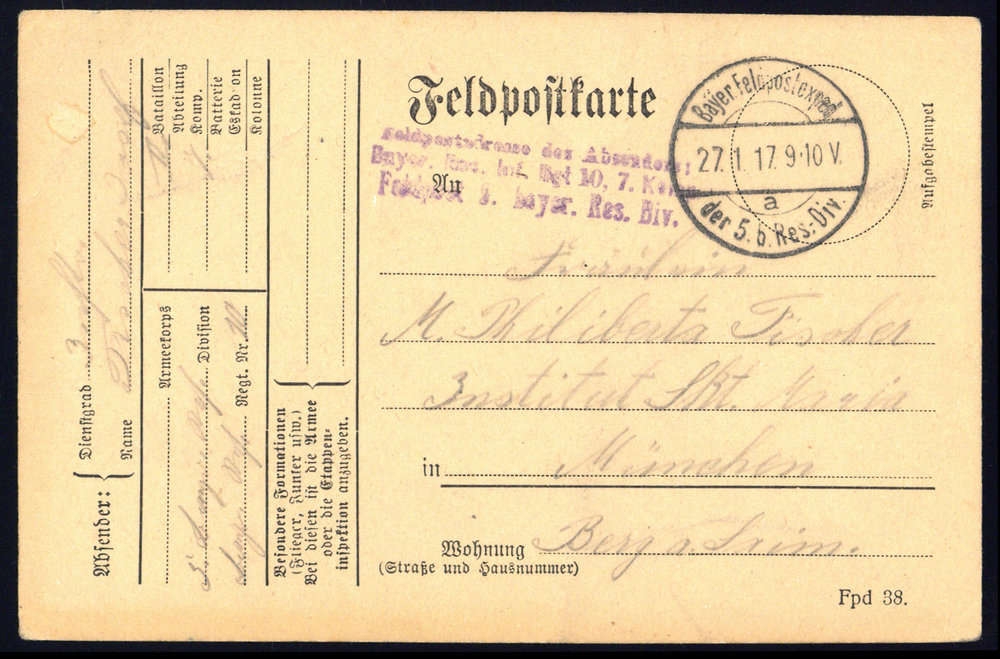 Feldpostkarte
Bayer. Feldpostexped.
27. 1. 17. 9-10 V.
a
der 5. b. Res.-Div.
Aufgabestempel
Feldpostadresse des Absenders:
Bayer. Res. Inf. Rgt 10, 7. Komp.
Feldpost 5. bayer. Res. Div.
An
Fräulein
M. Philiberta Fischer
Institut Skt. Maria
in München
Wohnung Berg a. Laim.
(Straße und Hausnummer)
Fpd 38.
Absender:
Dienstgrad
Name
Bataillon
Abteilung
Komp.
Batterie
Eskadron
Kolonne
Armeekorps
Division
Regt. Nr. 10
Besondere Formationen
(Flieger, Funker usw.)
Bei diesen ist die Armee
oder die Etappen-
inspektion anzugeben.